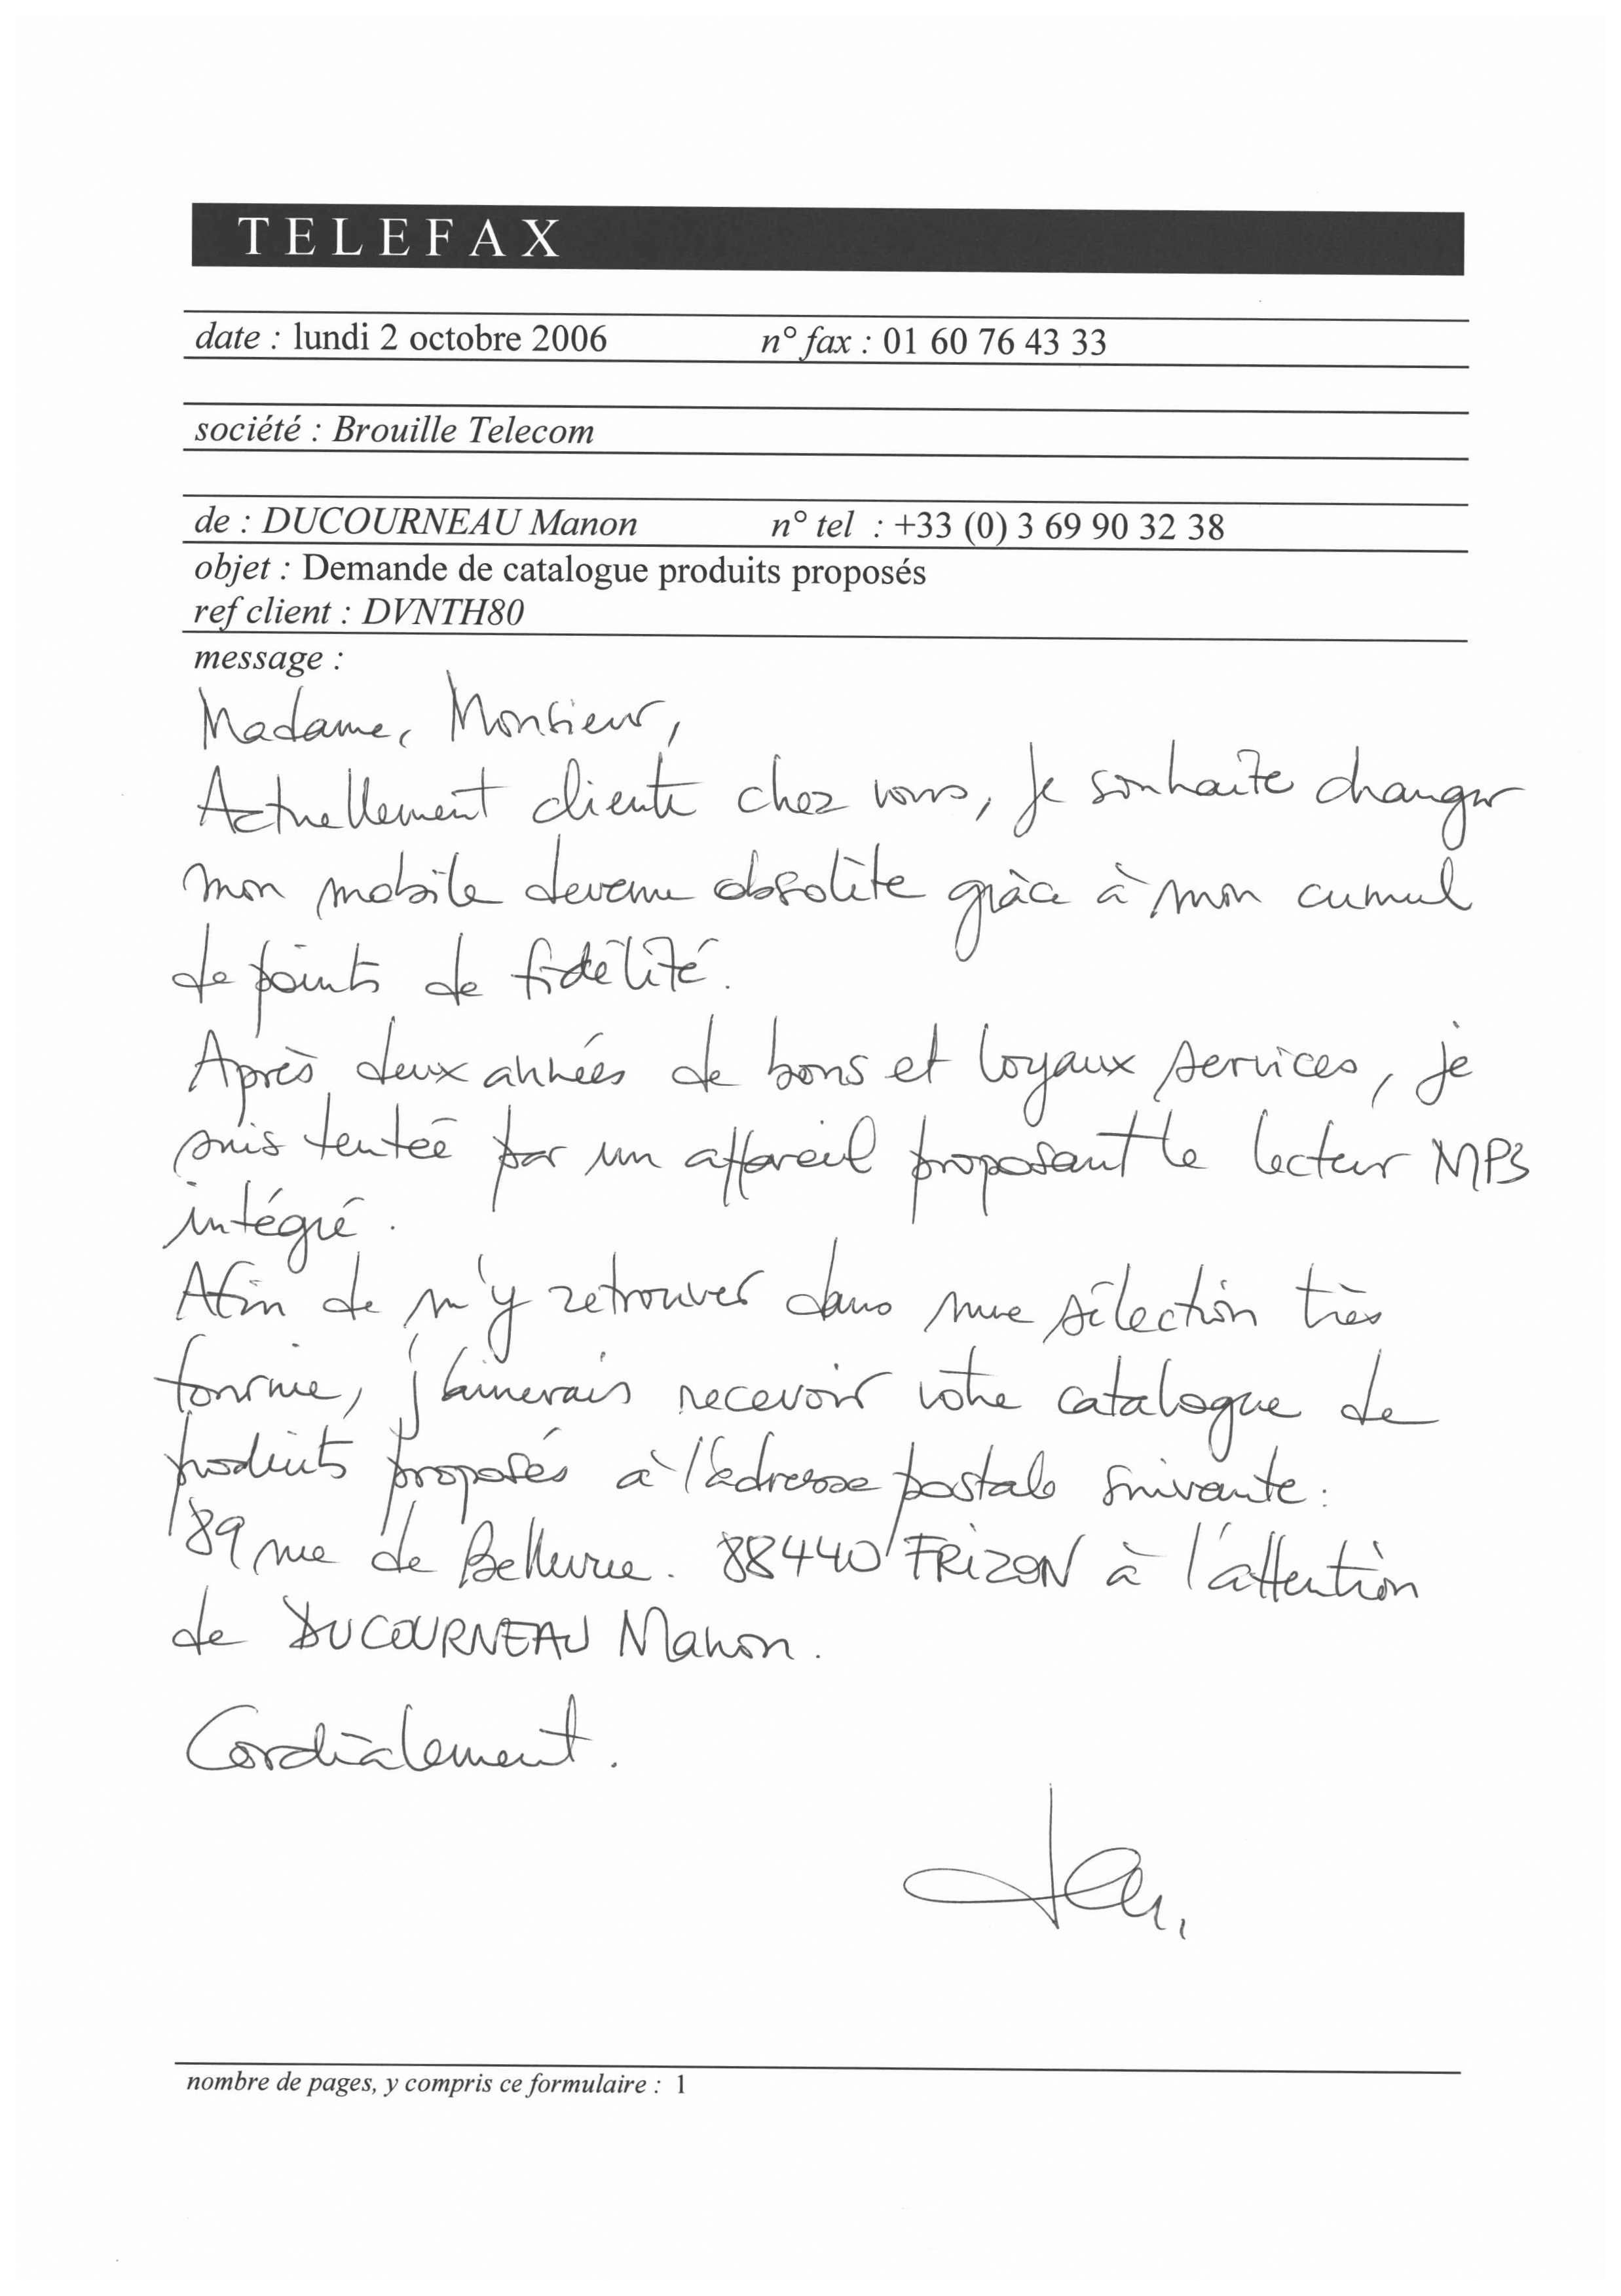 TELEFAX
date : lundi 2 octobre 2006 n° fax : 01 60 76 43 33
société : Brouille Telecom
de : DUCOURNEAU Manon n° tel : +33 (0) 3 69 90 32 38
objet : Demande de catalogue produits proposés
ref client : DVNTH80
message :
Madame, Monsieur,
Actuellement cliente chez vous, je souhaite changer
mon mobile devenu obsolète grâce à mon cumul
de points de fidélité.
Après deux années de bons et loyaux services, je
suis tentée par un appareil proposant le lecteur MP3
intégré.
Afin de m'y retrouver dans une sélection très
fournie, j'aimerais recevoir votre catalogue de
produits proposés à l'adresse postale suivante :
89 rue de Bellevue. 88440 FRIZON à l'attention
de DUCOURNEAU Manon.
Cordialement.
nombre de pages, y compris ce formulaire : 1